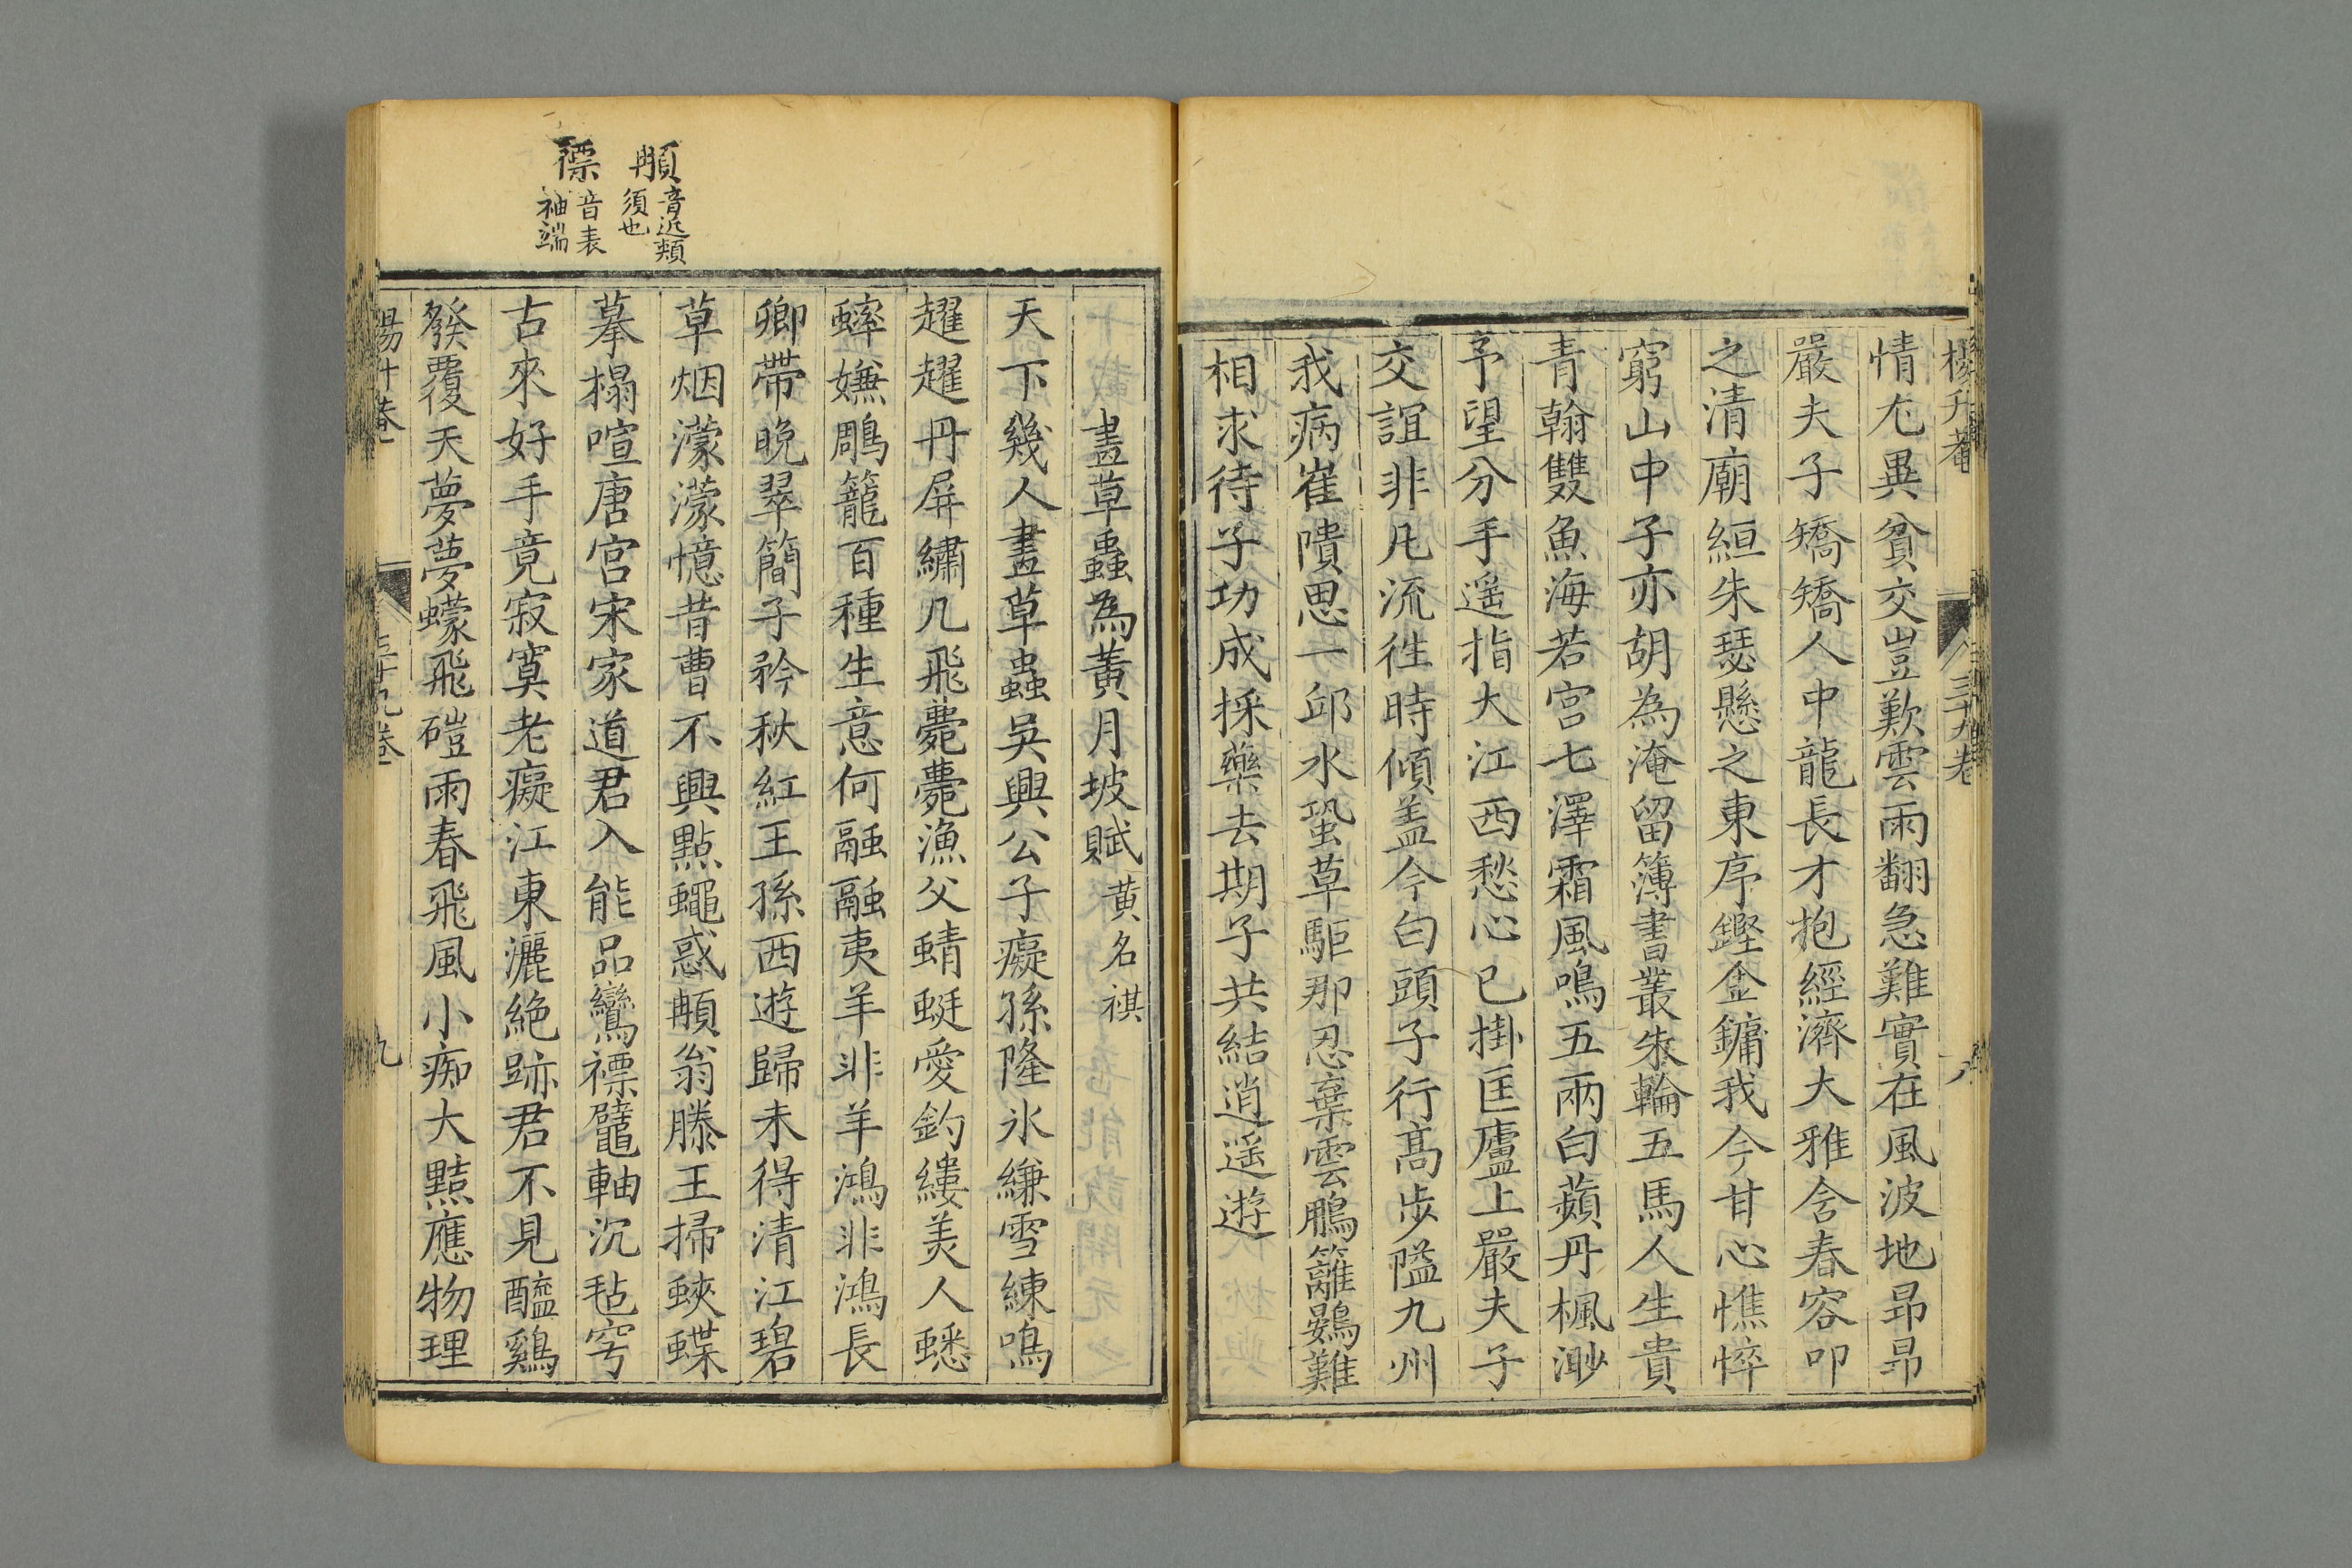 楊升菴 三十九卷 八
情尤異貧交豈歎雲雨翻急難實在風波地昻昻
嚴夫子矯矯人中龍長才抱經濟大雅含春容叩
之清廟絙朱瑟懸之東序鏗金鏞我今甘心憔悴
窮山中子亦胡為淹留簿書叢朱輪五馬人生貴
青翰雙魚海若宮七澤霜風鳴五兩白蘋丹楓渺
予望分手遥指大江西愁心已掛匡廬上嚴夫子
交誼非凡流徃時傾盖今白頭子行髙步隘九州
我病崔隤思一邱水蛩草駏那忍棄雲鵬籬鷃難
相求待子功成採藥去期子共結逍遥遊
畫草蟲為黄月坡賦 黄名祺
天下幾人畫草蟲吳興公子癡孫隆氷縑雪練鳴
趯趯丹屏繡几飛薨薨漁父蜻蜓愛釣縷美人蟋
蟀嫌雕籠百種生意何融融夷羊非羊鴻非鴻長
卿帶晚翠簡子矜秋紅王孫西遊歸未得清江碧
草烟濛濛憶昔曹不興點蠅惑䫇翁滕王掃蛺蝶
摹榻喧唐宮宋家道君入能品鸞褾鼊軸沉毡穹
古來好手竟寂寞老癡江東灑絶跡君不見醯鷄
發覆天夢夢蠓飛磑雨春飛風小痴大黠應物理
䫇 音近類 須也
褾 音表 袖端